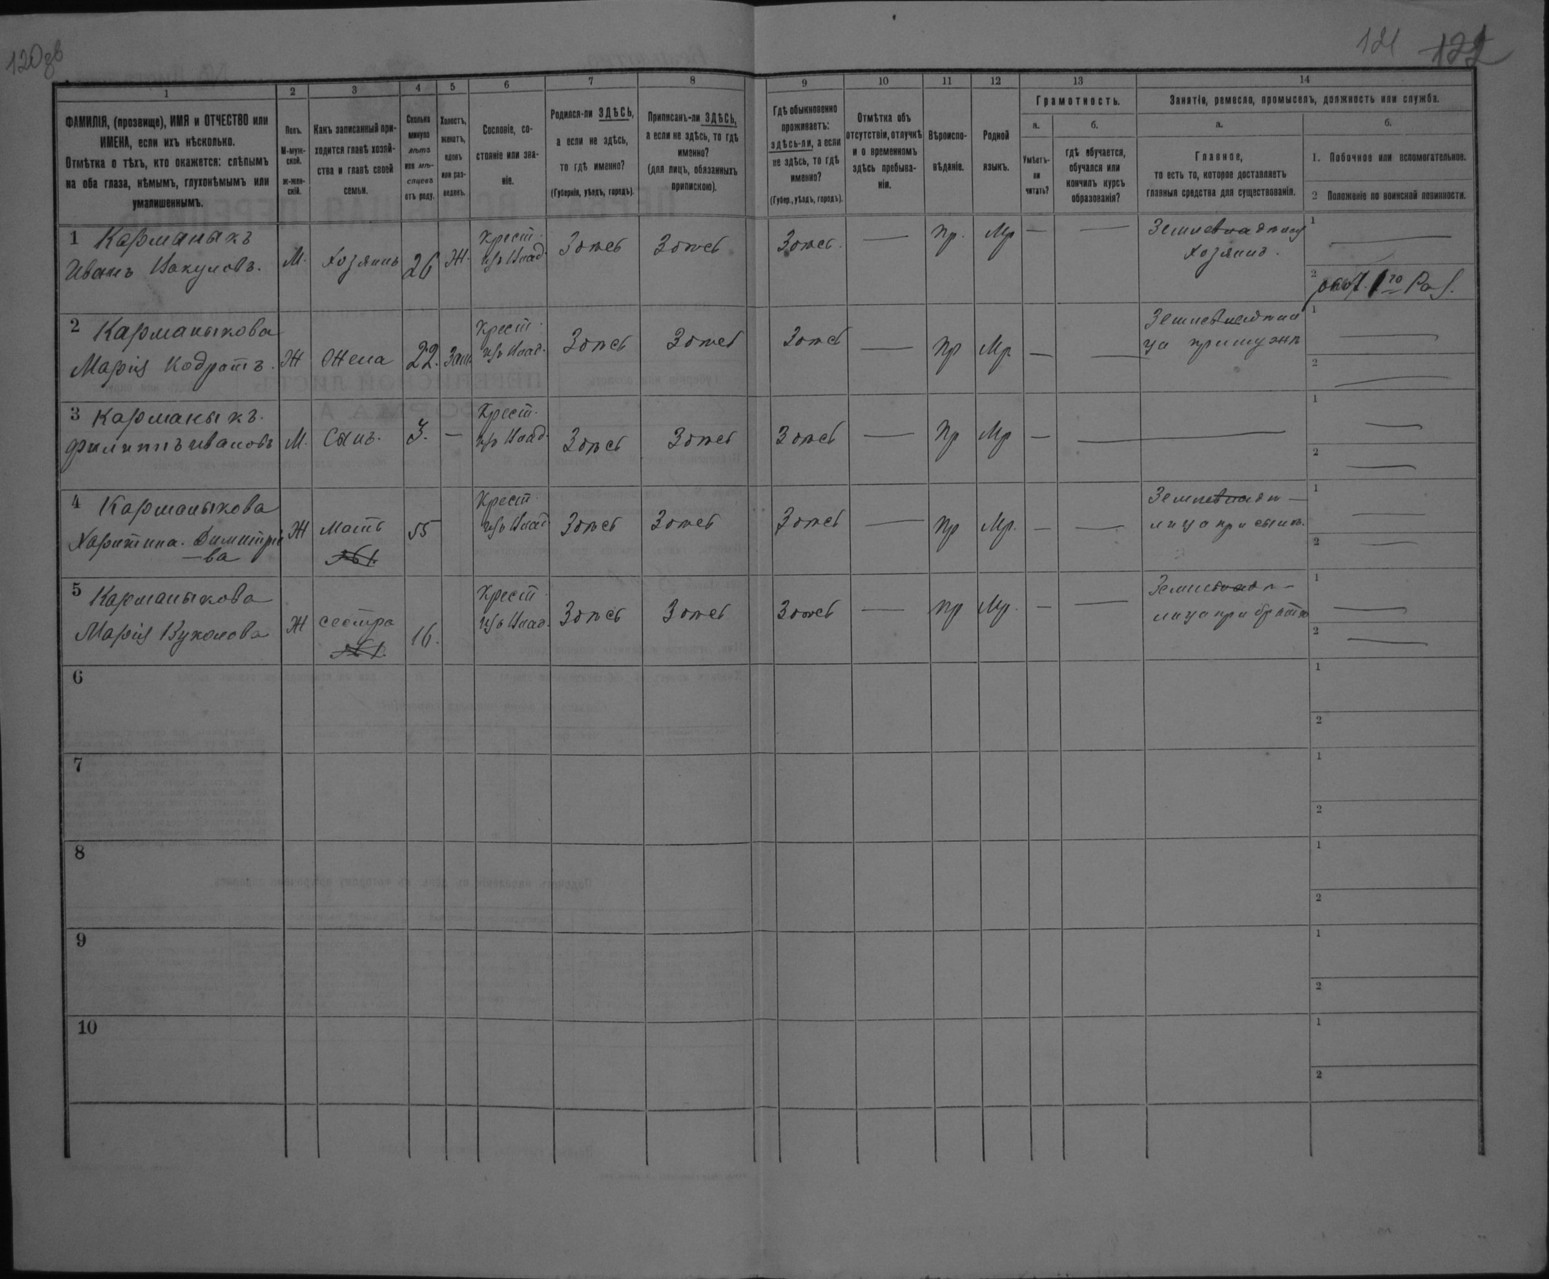 120об
121
122
1
2
3
4
5
6
7
8
9
10
11
12
13
14
ФАМИЛІЯ, (прозвище), ИМЯ и ОТЧЕСТВО или
ИМЕНА, если ихъ нѣсколько.
Отмѣтка о тѣхъ, кто окажется: слѣпымъ
на оба глаза, нѣмымъ, глухонѣмымъ или
умалишеннымъ.
Полъ.
М-муж-
ской.
ж-жен-
скій.
Какъ записанный при-
ходится главѣ хозяй-
ства и главѣ своей
семьи.
Сколько
минуло
лѣтъ
или мѣ-
сяцевъ
отъ роду.
Холостъ,
женатъ,
вдовъ
или раз-
веденъ.
Сословіе, со-
стояніе или зва-
ніе.
Родился-ли ЗДѢСЬ,
а если не здѣсь,
то гдѣ именно?
(Губернія, уѣздъ, городъ).
Приписанъ-ли ЗДѢСЬ,
а если не здѣсь, то гдѣ
именно?
(для лицъ, обязанныхъ
припискою).
Гдѣ обыкновенно
проживаетъ:
здѣсь-ли, а если
не здѣсь, то гдѣ
именно?
(Губер., уѣздъ, городъ).
Отмѣтка объ
отсутствіи, отлучкѣ
и о временномъ
здѣсь пребыва-
ніи.
Вѣроиспо-
вѣданіе.
Родной
языкъ.
Грамотность.
а.
Умѣетъ-
ли
читать?
б.
гдѣ обучается,
обучался или
кончилъ курсъ
образованія?
Занятіе, ремесло, промыселъ, должность или служба.
а.
Главное,
то есть то, которое доставляетъ
главныя средства для существованія.
б.
1. Побочное или вспомогательное.
2 Положеніе по воинской повинности.
1 Карманыкъ
Иванъ Вакуловъ.
М. Хозяинъ 26 Ж.
Крест.
изъ Влад.
Здѣсь Здѣсь Здѣсь — Пр. Мр — —
Хозяинъ.
1
2
2 Карманыкова
Марія Кодратъ.
Ж Жена 22. Зам.
Крест.
изъ Влад.
Здѣсь Здѣсь Здѣсь — Пр Мр. — —
1
2
3 Карманыкъ.
Филиппъ Ивановъ
М. Сынъ. 3. —
Крест.
изъ Влад.
Здѣсь Здѣсь Здѣсь — Пр Мр — — —
1
2
4 Карманыкова
Харитина. Димитріе
-ва
Ж Мать 55
№1
Крест.
изъ Влад
Здѣсь Здѣсь Здѣсь — Пр Мр. — —
лица при сынѣ.
1
2
5 Карманыкова
Марія Вуколова
Ж сестра 16.
№1.
Крест
изъ Влад.
Здѣсь Здѣсь Здѣсь — Пр Мр. — —
лица при братѣ
1
2
6
1
2
7
1
2
8
1
2
9
1
2
10
1
2